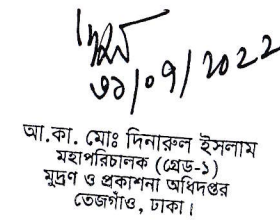 ৩১/০৭/2022
আ.কা. মোঃ দিনারুল ইসলাম
মহাপরিচালক (গ্রেড-১)
মুদ্রণ ও প্রকাশনা অধিদপ্তর
তেজগাঁও, ঢাকা।